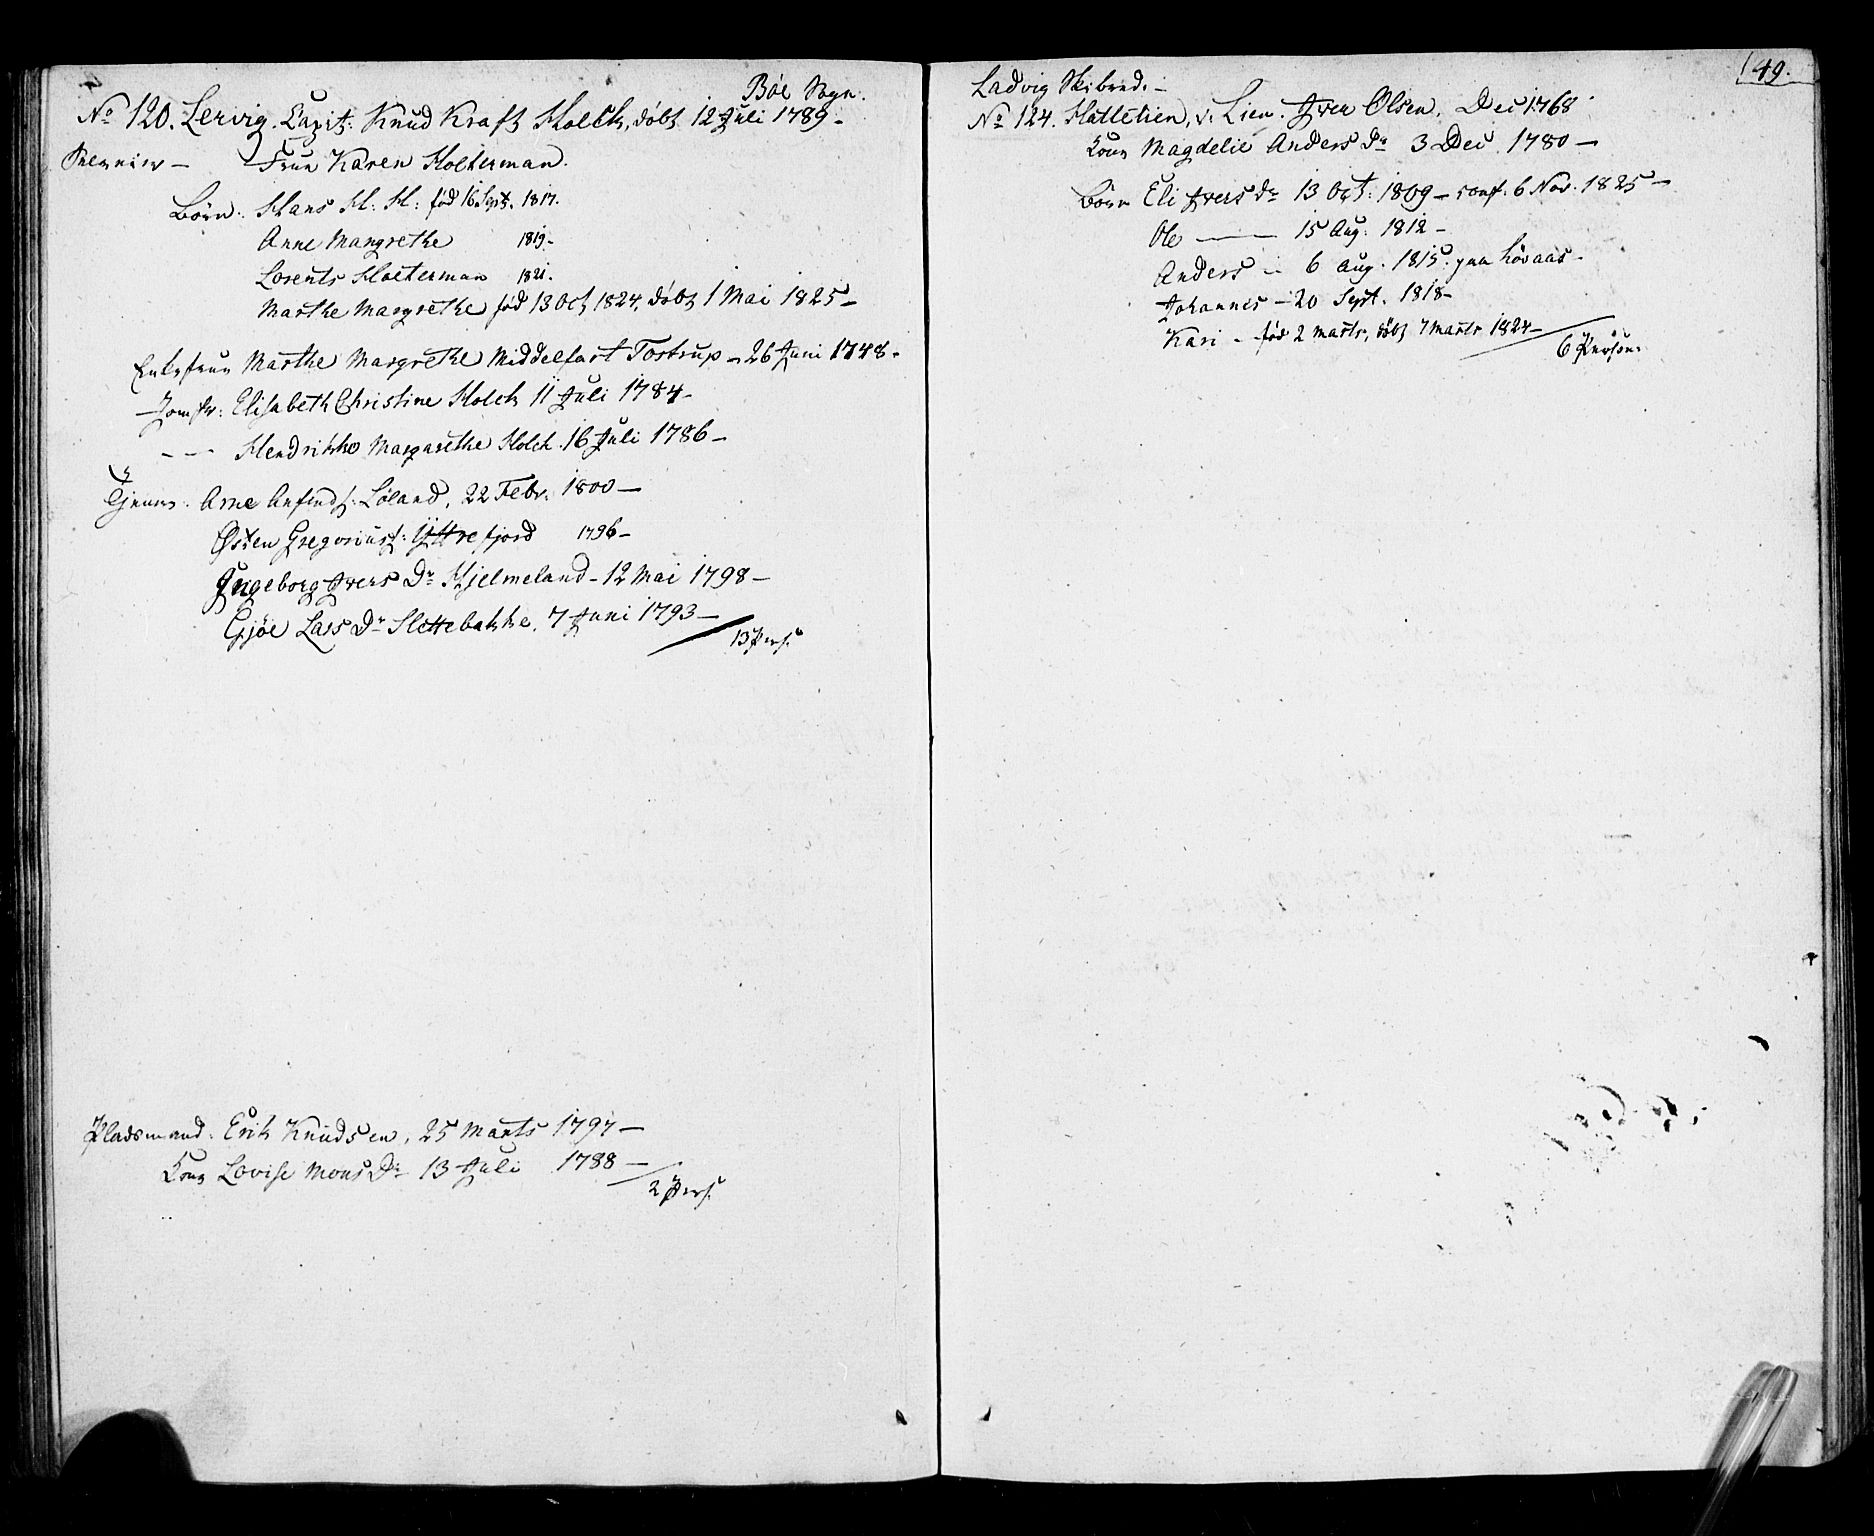 Böe Sogn.
No 120. Lervig. Capit: Knud Kraft Holck, döbt 12 Juli 1789 -
Frue Karen Holterman.
Börn: Hans H: H: föd 16 Sept. 1817.
Anne Margrethe 1819 -
Lorents Holterman 1821.
Marthe Margrethe föd 13 Oct 1824, döbt 1 Mai 1825 -
Enkefrue Marthe Margrethe Middelfart Tostrup - 26 Juni 1748 -
Jomfr: Elisabeth Christine Holck 11 Juli 1784 -
- - - Hendrikke Margarethe Holck 16 Juli 1786 -
Tjenere. Arne Anfinds: Löland, 22 Febr: 1800 -
Östen Gregoriusf: Yttrefjord 1796 -
Ingeborg Ivers Dr Hjelmeland - 12 Mai 1798 -
Gjöe Lars Dr Slettebakke. 7 Juni 1793 -
13 Pers:
Pladsmand. Erik Knudsen, 25 Marts 1797 -
Kone Lovise Mons Dr 13 Juli 1788 -
2 Pers:
Ladvig Skibred. -
149.
No 124. Hatletien, v. Lien. Iver Olsen. Dec 1768
Kone Magdelie Anders Dr 3 Dec 1780 -
Börn Eli Ivers Dr 13 Oct: 1809 - conf. 6 Nov. 1825 -
Ole - 15 Aug. 1812 -
Anders - 6 Aug. 1815. paa Hövaas -
Johannes - 20 Sept. 1818 -
Kari - föd 2 Marts, döbt 7 Marts 1824 -
6 Personer